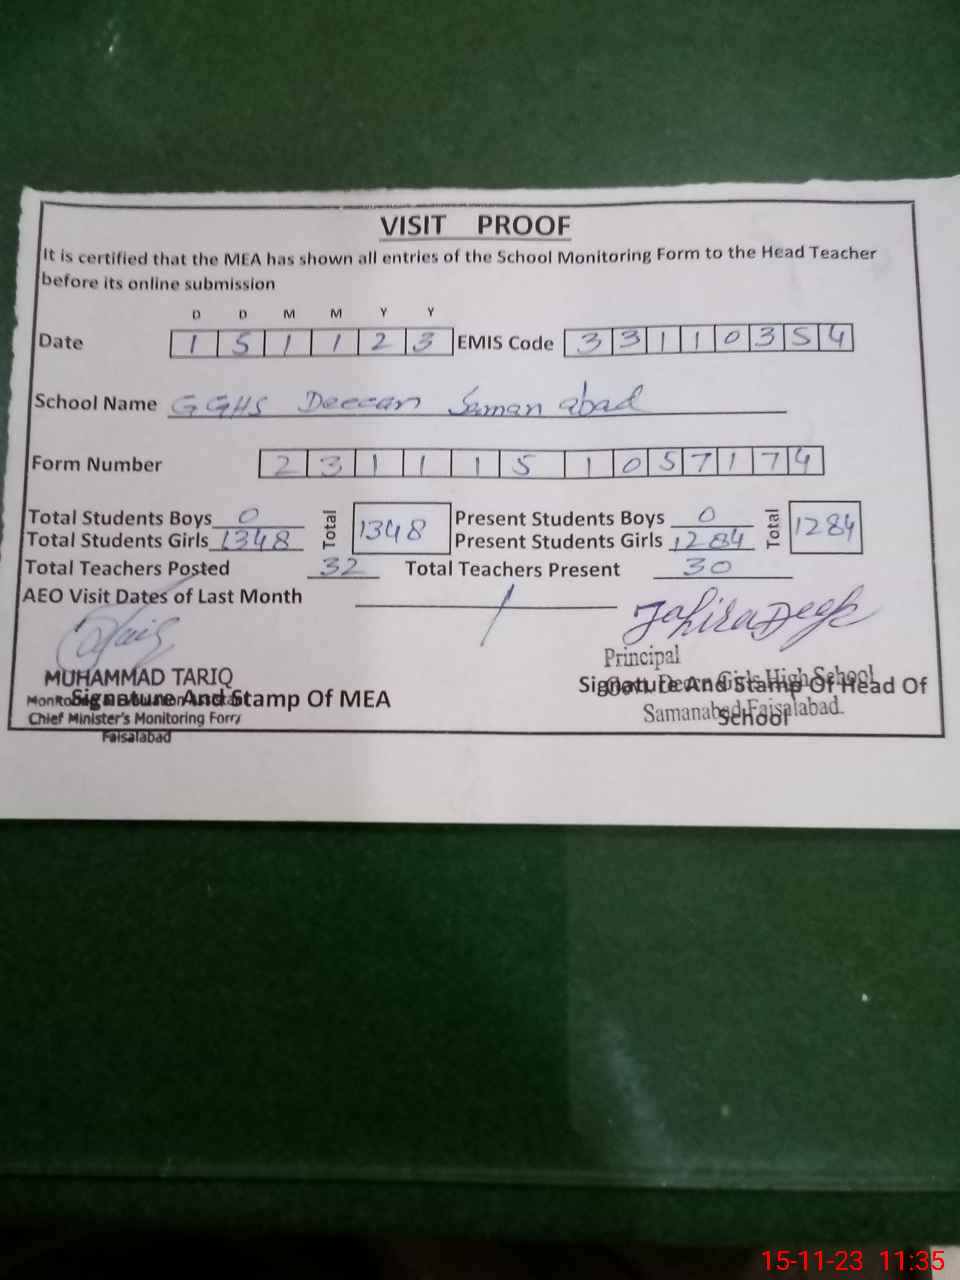 VISIT PROOF
It is certified that the MEA has shown all entries of the School Monitoring Form to the Head Teacher
before its online submission
D D M M Y Y
Date 1 5 1 1 2 3 EMIS Code 3 3 1 1 0 3 5 4
School Name GGHS Deccan Samanabad
Form Number 2 3 1 1 1 5 1 0 5 7 1 7 4
Total Students Boys 0 Total 1348 Present Students Boys 0 Total 1284
Total Students Girls 1348 Present Students Girls 1284
Total Teachers Posted 32 Total Teachers Present 30
AEO Visit Dates of Last Month /
Principal
MUHAMMAD TARIQ
Govt. Girls High School
Signature And Stamp Of MEA Signature And Stamp Of Head Of
Samanabad Faisalabad.
School
Chief Minister's Monitoring Force
Faisalabad
15-11-23 11:35